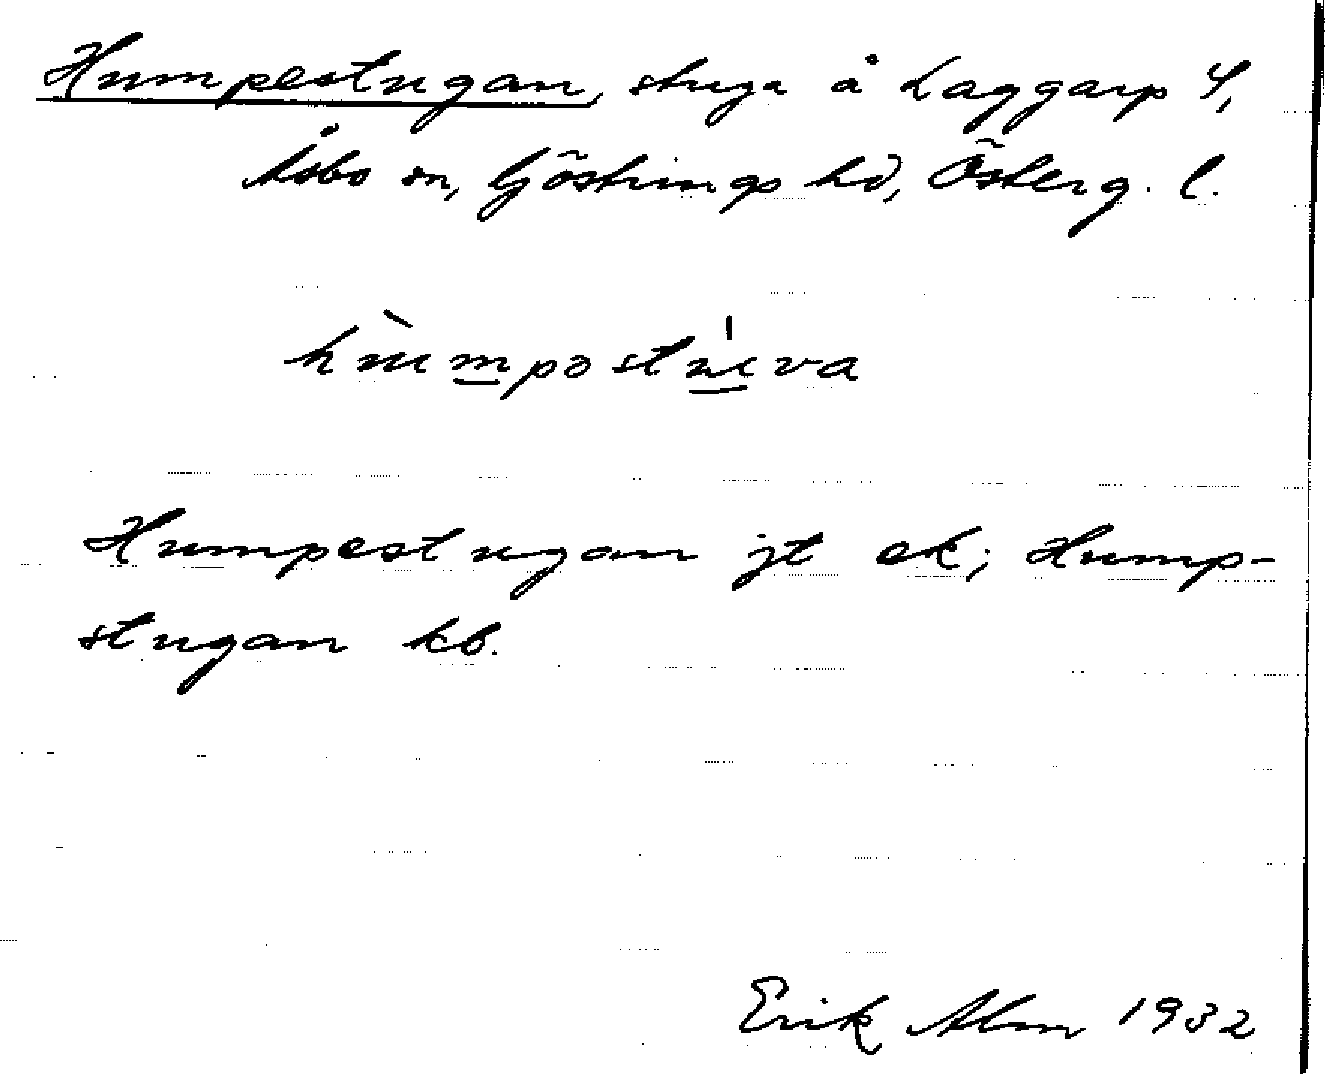 Humpestugan, stuga å Laggarp S,
Åsbo sn, Göstrings hd, Österg. l.
hùmpəstúva
Humpestugan jt ek; Hump-
stugan kb.
Erik Alm 1932